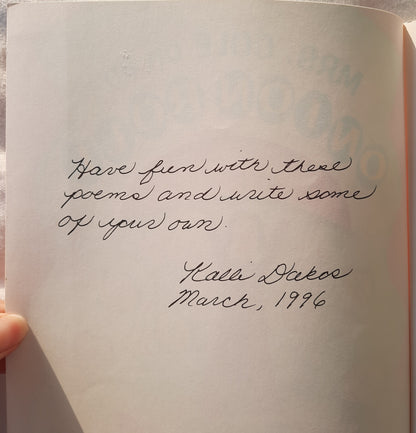 Have fun with these
poems and write some
of your own.
Kalli Dakos
March, 1996